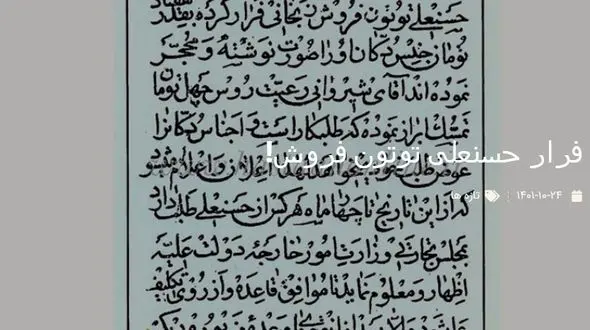 حسنعلی توتون فروش بخانی فرار کرده بقدر
تومان جنس دکان او را صورت نوشته و محجر
نموده اند آقای شیروانی رعیت روس چهل تومان
تمسک ابراز نموده که طلبکار است و اجناس دکان را
عوض طلب خود میخواهد لهذا اعلان و اعلام میشود
که از این تاریخ تا چهار ماه هر کس از حسنعلی طلب دارد
بمجلس تجارتی وزارت امور خارجه دولت علیه
اظهار و معلوم نماید تا موافق قاعده و از روی تکلیف
فرار حسنعلی توتون فروش!
۱۴۰۱-۱۰-۲۴
تازه ها